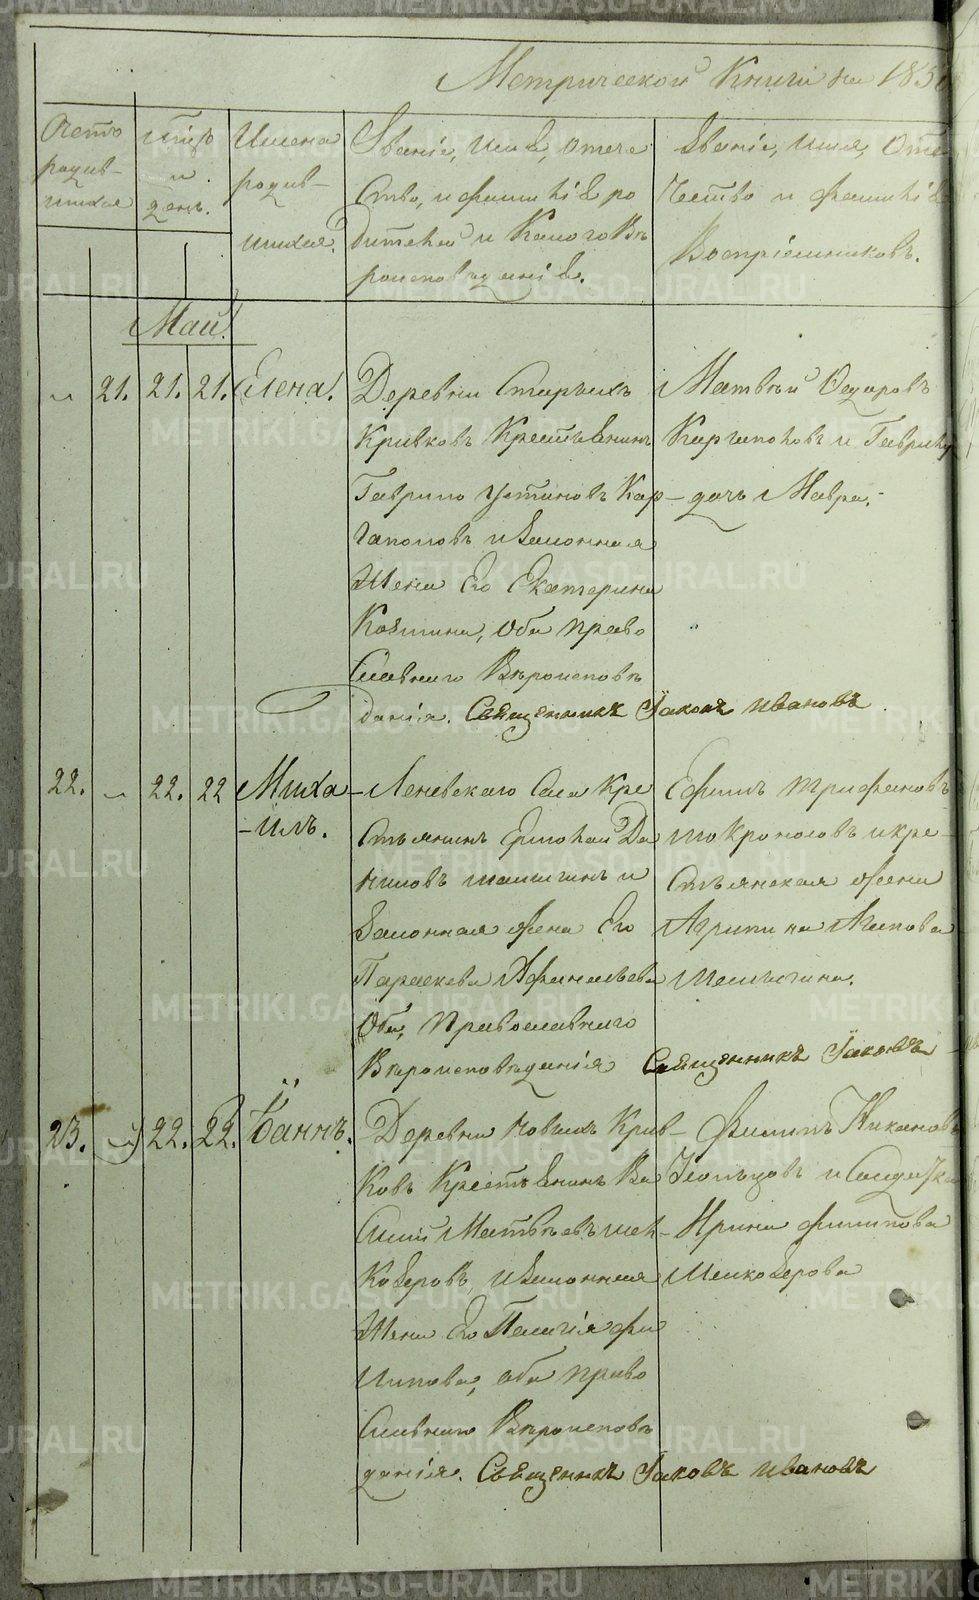 Метрической Книги на 185
Счетъ
родив-
шихся
М҃цъ
и
день.
Имена
родив-
шихся.
Званіе, имя, отече
ство, и фамилія ро
дителей и какого вѣ
роисповѣданія.
Званіе, имя, Оте
чество и фамилія
Воспріемниковъ.
Май
21. 21. 21. Елена.
Деревни Старыхъ
Кривковъ Крестьянинъ
Гаврило Устиновъ Кар-
гаполовъ и законная
Жена Его Екатерина
Козмина, оба право
славнаго Вѣроисповѣ
данія. Священникъ Іаковъ Ивановъ
Матвѣй Ѳедоровъ
Каргаполовъ и Гаврилы
дочь Мавра.
22. 22. 22 Миха
-илъ.
Леневскаго Села Кре
стьянинъ Ермолай Да
ниловъ и
законная жена Его
Параскева Афанасьева
Оба, Православнаго
Вѣроисповѣданія Священникъ Іаковъ
Ефимъ Трифановъ
Шокроносовъ и кре-
стьянская жена
Агрипина
23. 22. 22. Іоаннъ.
Деревни Новыхъ Крив-
ковъ Крестьянинъ Ва
силій Матвѣевъ Мел-
козеровъ, и законная
Жена Его Палагія Фи
липова, оба право
славнаго Вѣроисповѣ
данія. Священникъ Іаковъ Ивановъ
Филипъ Никановъ
Ирина Филипова
Мелкозерова
METRIKI.GASO-URAL.RU